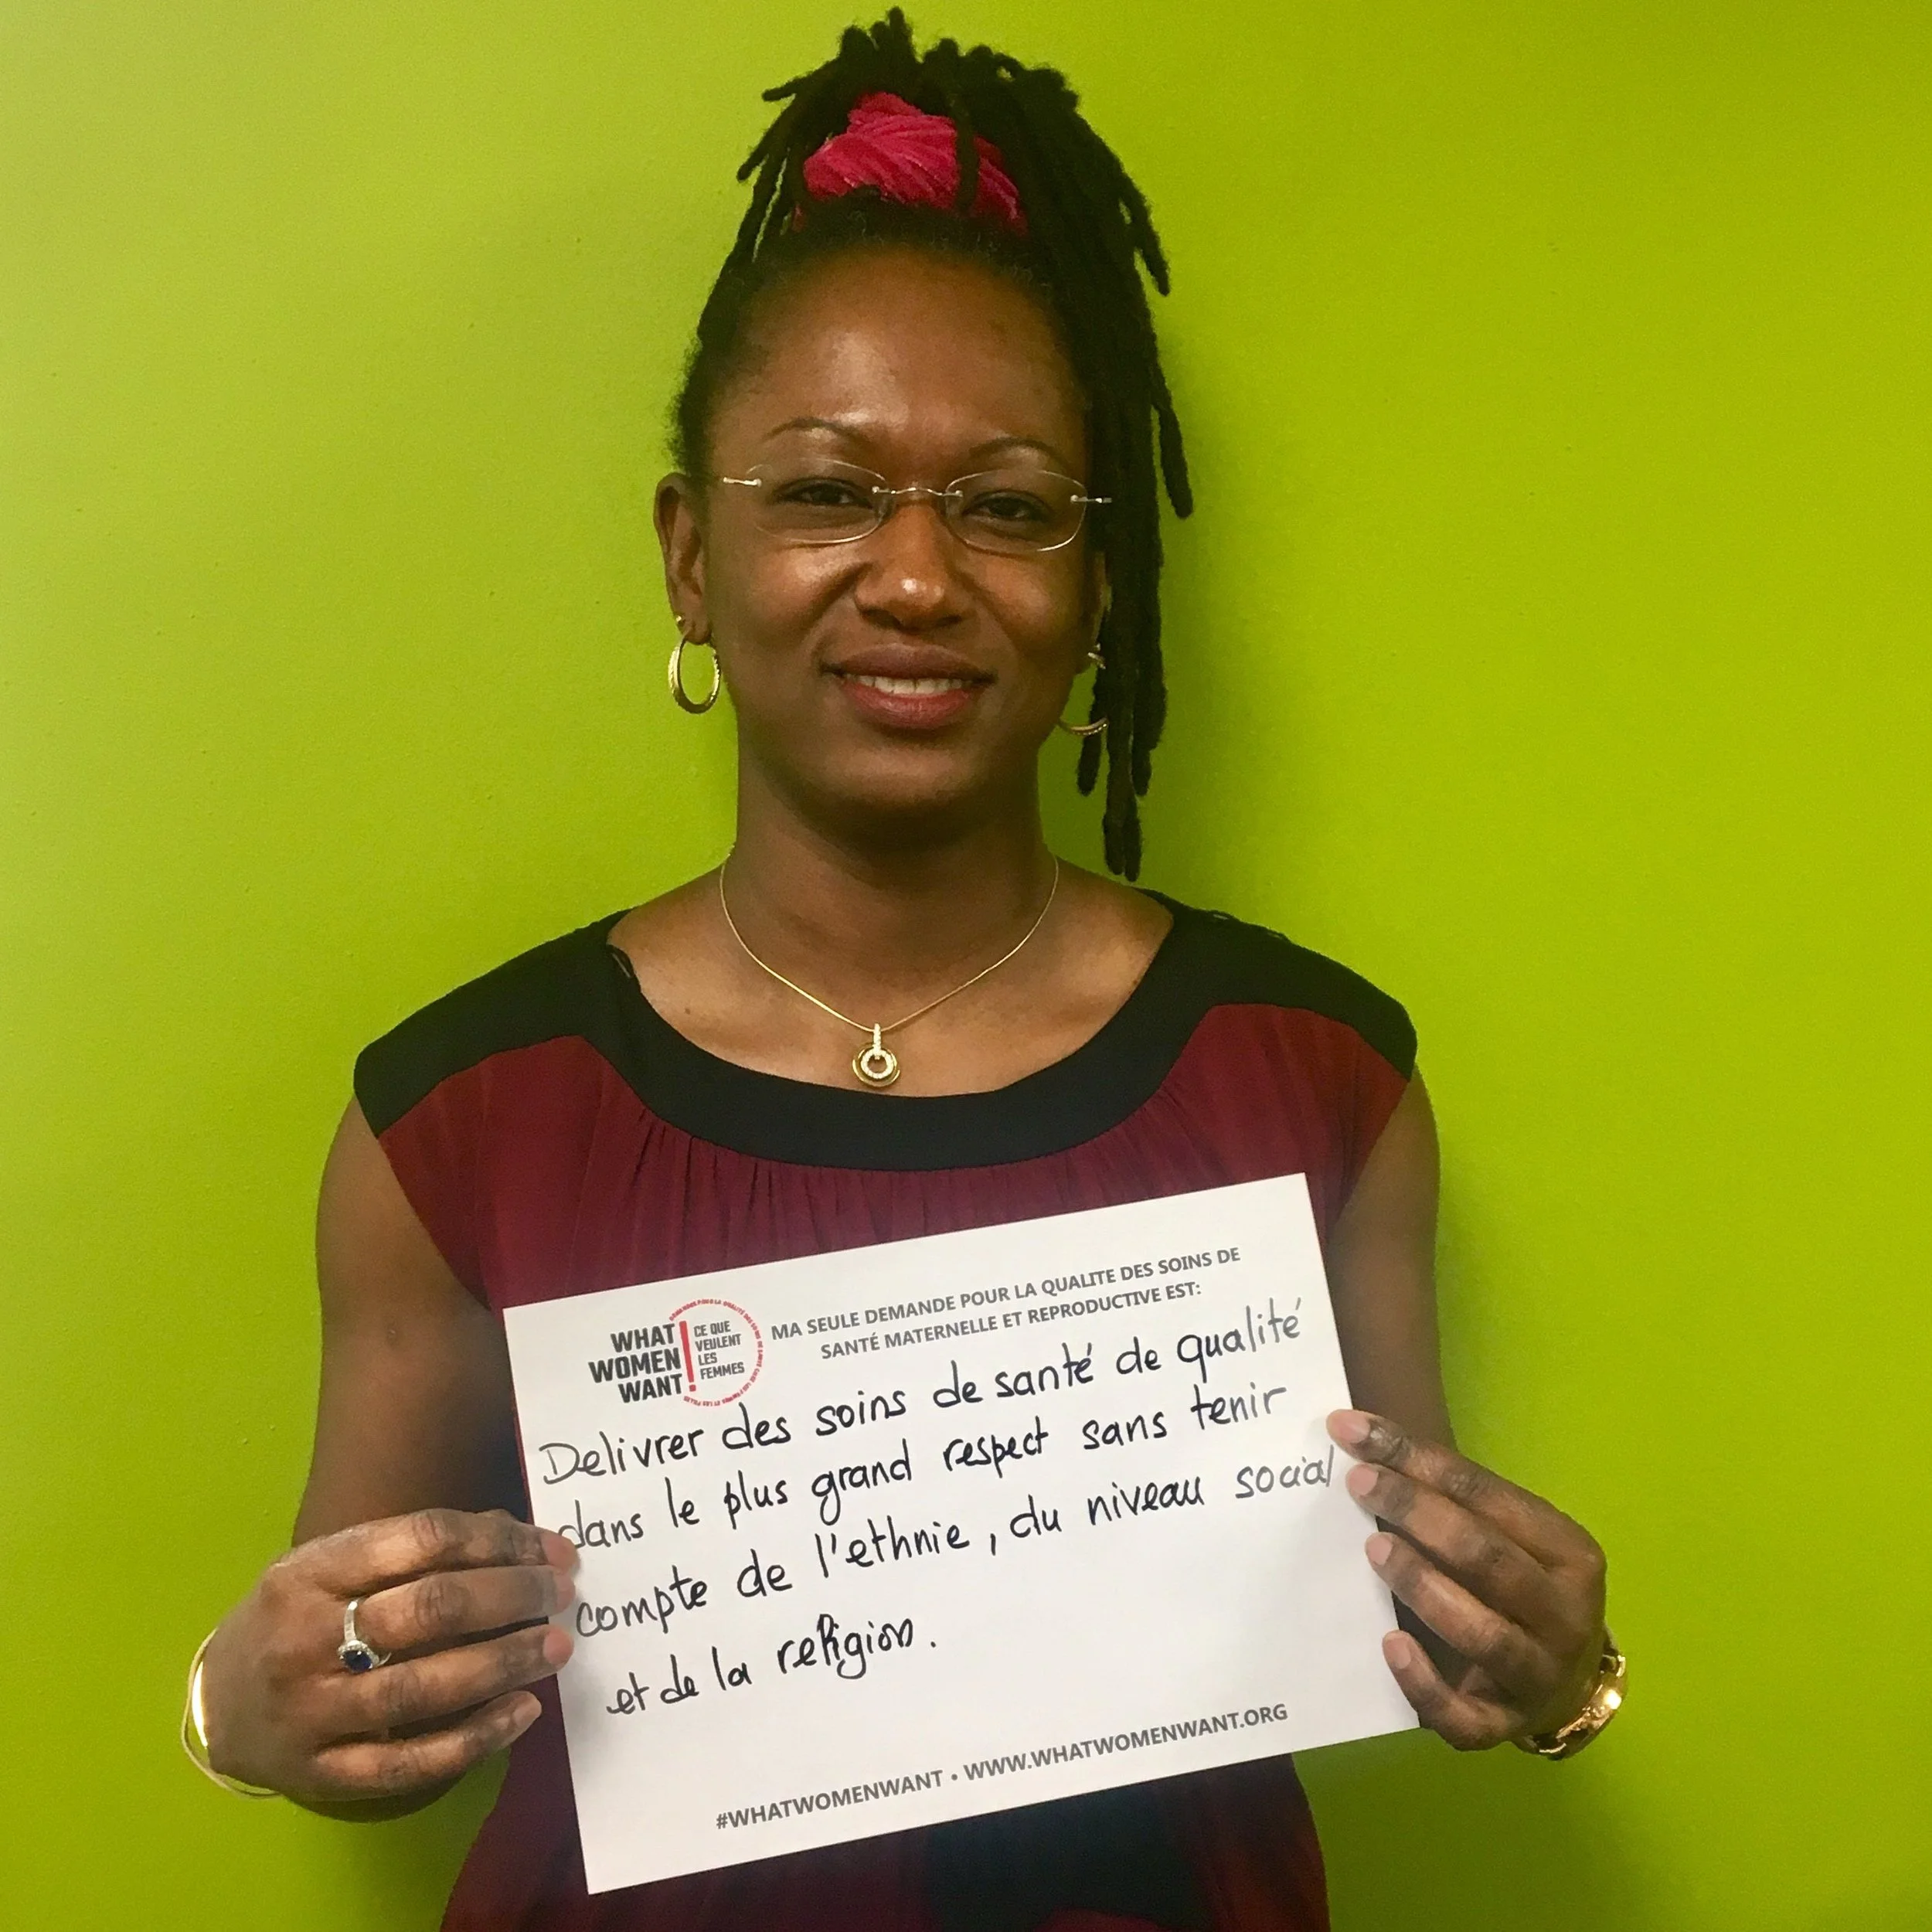 WHAT
WOMEN
WANT!
CE QUE
VEULENT
LES
FEMMES
MA SEULE DEMANDE POUR LA QUALITE DES SOINS DE
SANTÉ MATERNELLE ET REPRODUCTIVE EST:
Delivrer des soins de santé de qualité
dans le plus grand respect sans tenir
compte de l'ethnie, du niveau social
et de la religion.
#WHATWOMENWANT • WWW.WHATWOMENWANT.ORG